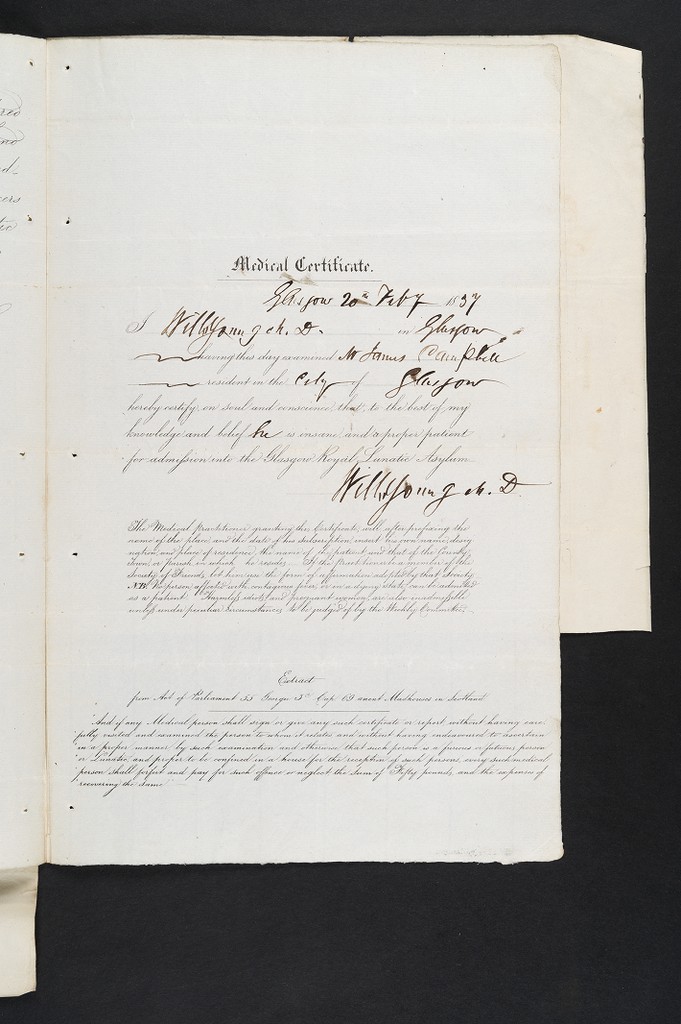 red
d-
cers
tic
Medical Certificate.
Glasgow 20th Feby 1837
I Will. Young M. D. in Glasgow
having this day examined Mr James Campbell
resident in the City of Glasgow
hereby certify, on soul and conscience, that, to the best of my
knowledge and belief he is insane, and a proper patient
for admission into the Glasgow Royal Lunatic Asylum
Will. Young M. D.
The Medical Practitioner granting this Certificate, will, after prefixing the
name of the place, and the date of his subscription, insert his own name, desig
nation, and place of residence, the name of the patient and that of the County,
Town or Parish in which he resides. If the Practitioner be a member of the
Society of Friends, let him use the form of affirmation adopted by that Society.
N.B. No person affected with contagious fever, or in a dying state, can be admitted
as a patient. Harmless idiots and pregnant women, are also inadmissible
unless under peculiar circumstances, to be judged of by the Weekly Committee.
Extract
from Act of Parliament 55 George 3d Cap 69 anent Madhouses in Scotland
"And if any Medical person shall sign or give any such certificate or report, without having care
fully visited and examined the person to whom it relates and without having endeavoured to ascertain
in a proper manner by such examination and otherwise that such person is a furious or fatuous person
or Lunatic, and proper to be confined in a house for the reception of such persons, every such medical
person shall forfeit and pay for such offence or neglect the sum of Fifty pounds, and the expenses of
recovering the same"